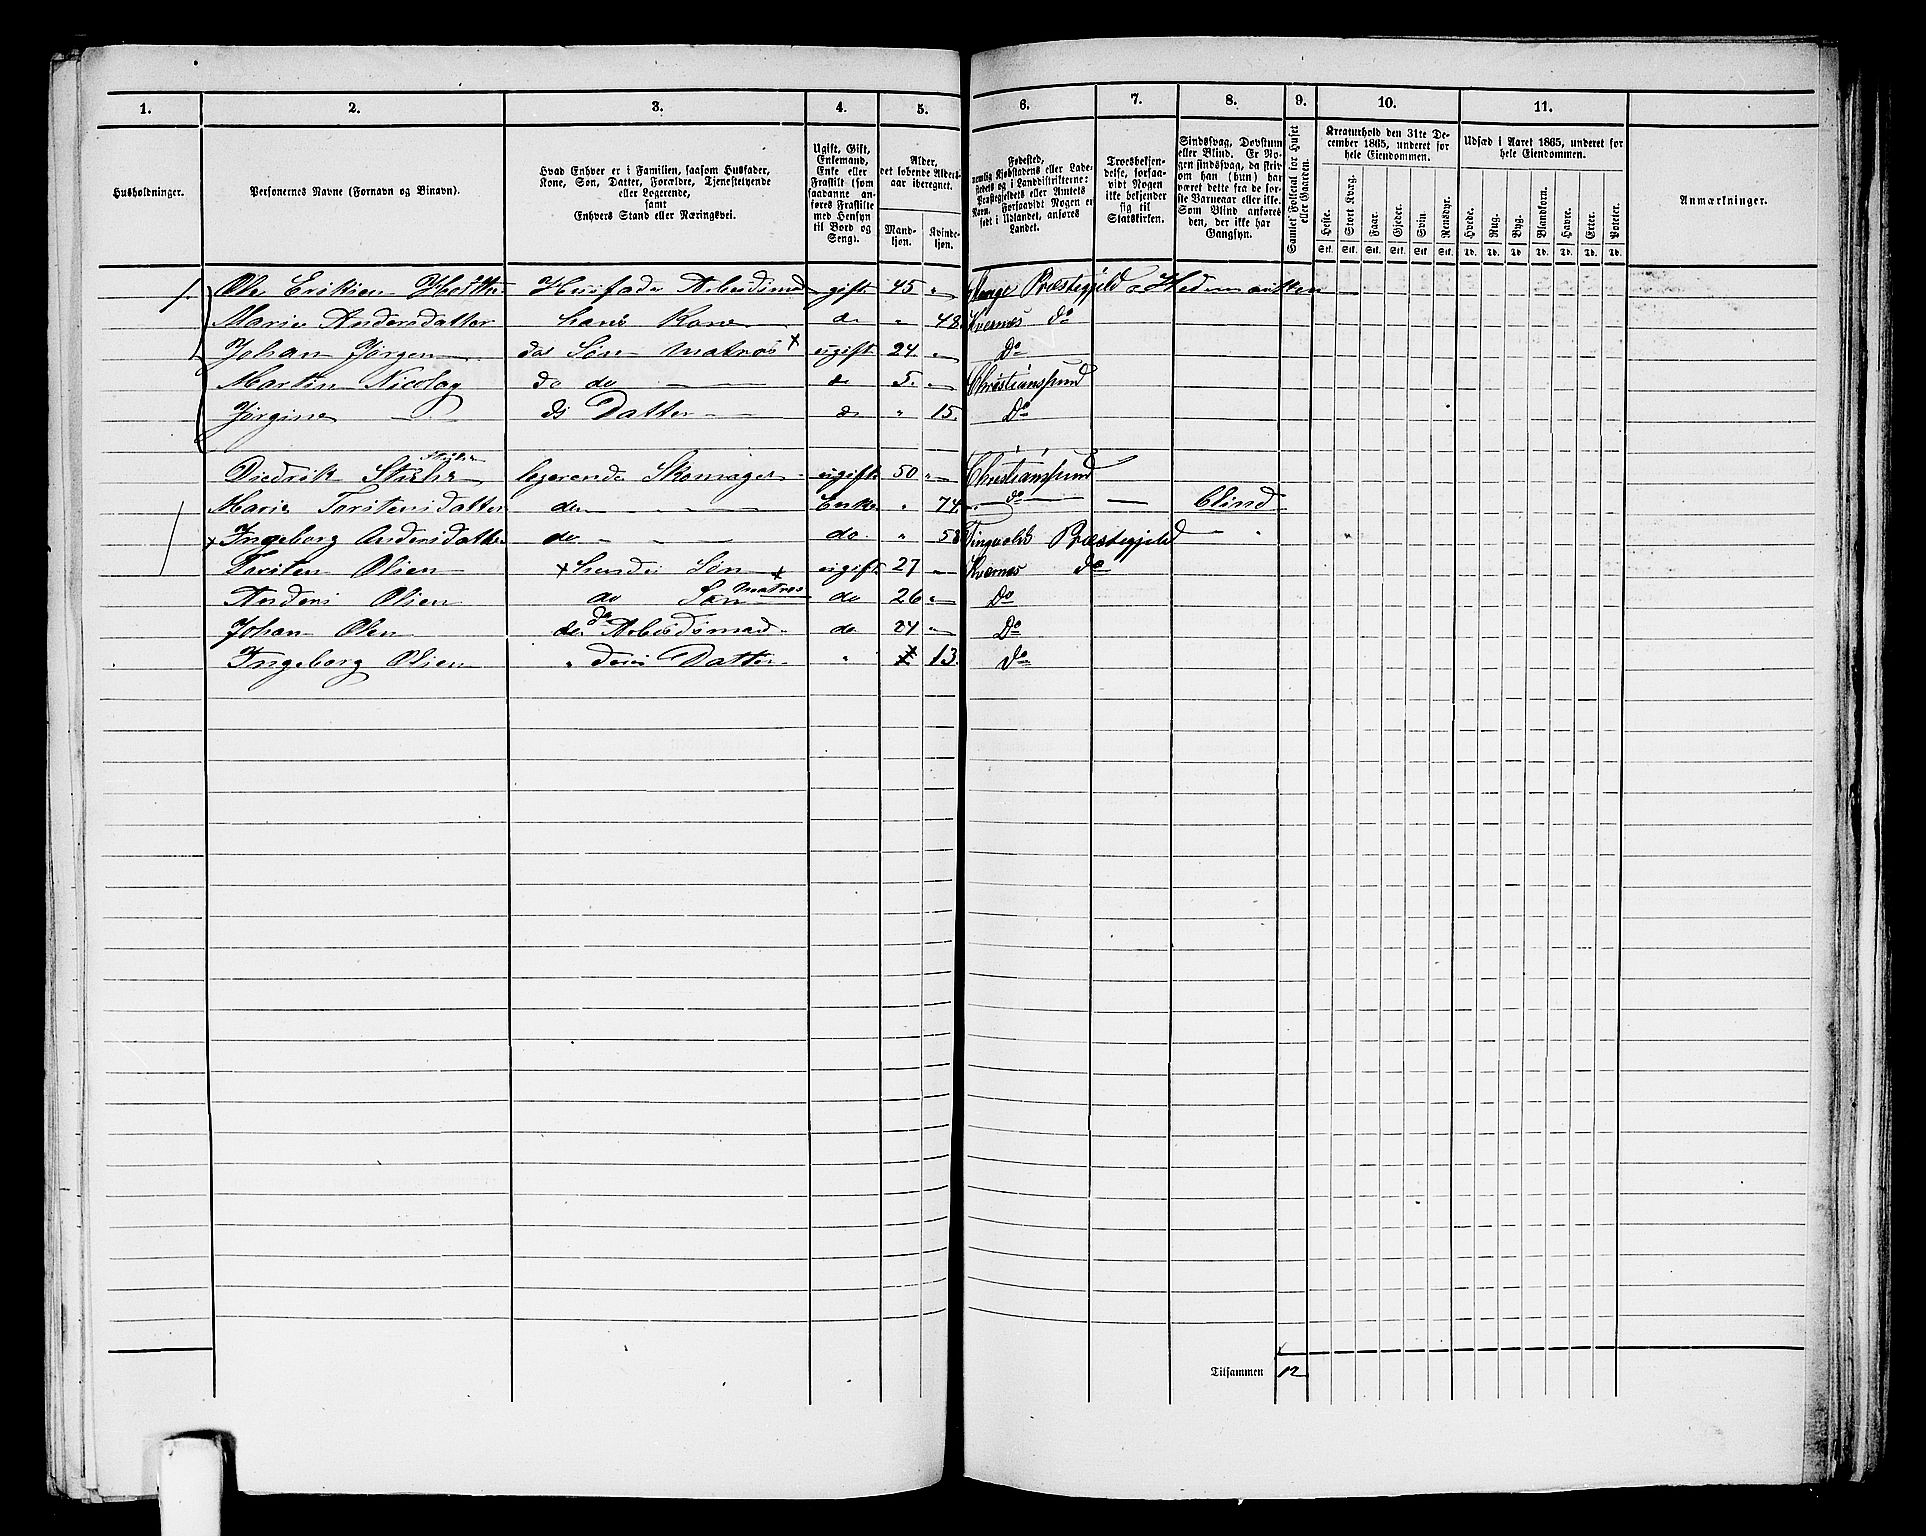 1. 2. 3. 4. 5. 6. 7. 8. 9. 10. 11.
Husholdninger.
Personernes Navne (Fornavn og Binavn).
Hvad Enhver er i Familien, saasom Husfader,
Kone, Søn, Datter, Forældre, Tjenestetyende
eller Logerende,
samt
Enhvers Stand eller Næringsvei.
Ugift, Gift,
Enkemand,
Enke eller
Fraskilt (som
saadanne an-
føres Fraskilte
med Hensyn
til Bord og
Seng).
Alder,
det løbende Alders-
aar iberegnet.
Mand-
kjøn.
Kvinde-
kjøn.
Fødested,
nemlig Kjøbstadens eller Lade-
stedets og i Landdistrikterne:
Præstegjeldets eller Amtets
Navn. Forsaavidt Nogen er
født i Udlandet, anføres
Landet.
Troesbekjen-
delse, forsaa-
vidt Nogen
ikke bekjender
sig til
Statskirken.
Sindssvag, Døvstum
eller Blind. Er No-
gen sindssvag, da skriv
om han (hun) har
været dette fra de før-
ste Barneaar eller ikke.
Som Blind anføres
den, der ikke har
Gangsyn.
Samlet Folketal for Huset
eller Gaarden.
Kreaturhold den 31te De-
cember 1865, underet for
hele Eiendommen.
Heste. Stort Kvæg. Faar. Gjeder. Svin. Rensdyr.
Stk. Stk. Stk. Stk. Stk. Stk.
Udsæd i Aaret 1865, underet for
hele Eiendommen.
Hvede. Rug. Byg. Blandkorn. Havre. Erter. Poteter.
Td. Td. Td. Td. Td. Td. Td.
Anmærkninger.
1. Ole Eriksen Husfader Arbeidsmand gift 45 " Præstegjeld Hedemarken
Marie Andersdatter hans Kone do " 48 Kvernes do
Johan Jørgen des Søn Matros x ugift 24 " Do
Martin Nicolay do do do 5 " Christianssund
Jørgine ds Datter do " 15. Do
Diedrik logerende Skomager ugift 50 " Christianssund
Marie Torstensdatter do Enke " 74 do Blind
x Ingeborg Andersdatter do do " 58 Tingvolds Præstegjeld "
Torsten Olsen x hendes Søn x ugift 27 " Kvernes do
Anders Olsen do Søn Matros do 26 " Do
Johan Olsen do do Arbeidsmand do 24 " Do
Ingeborg Olsen " des Datter " 13. Do
Tilsammen 12